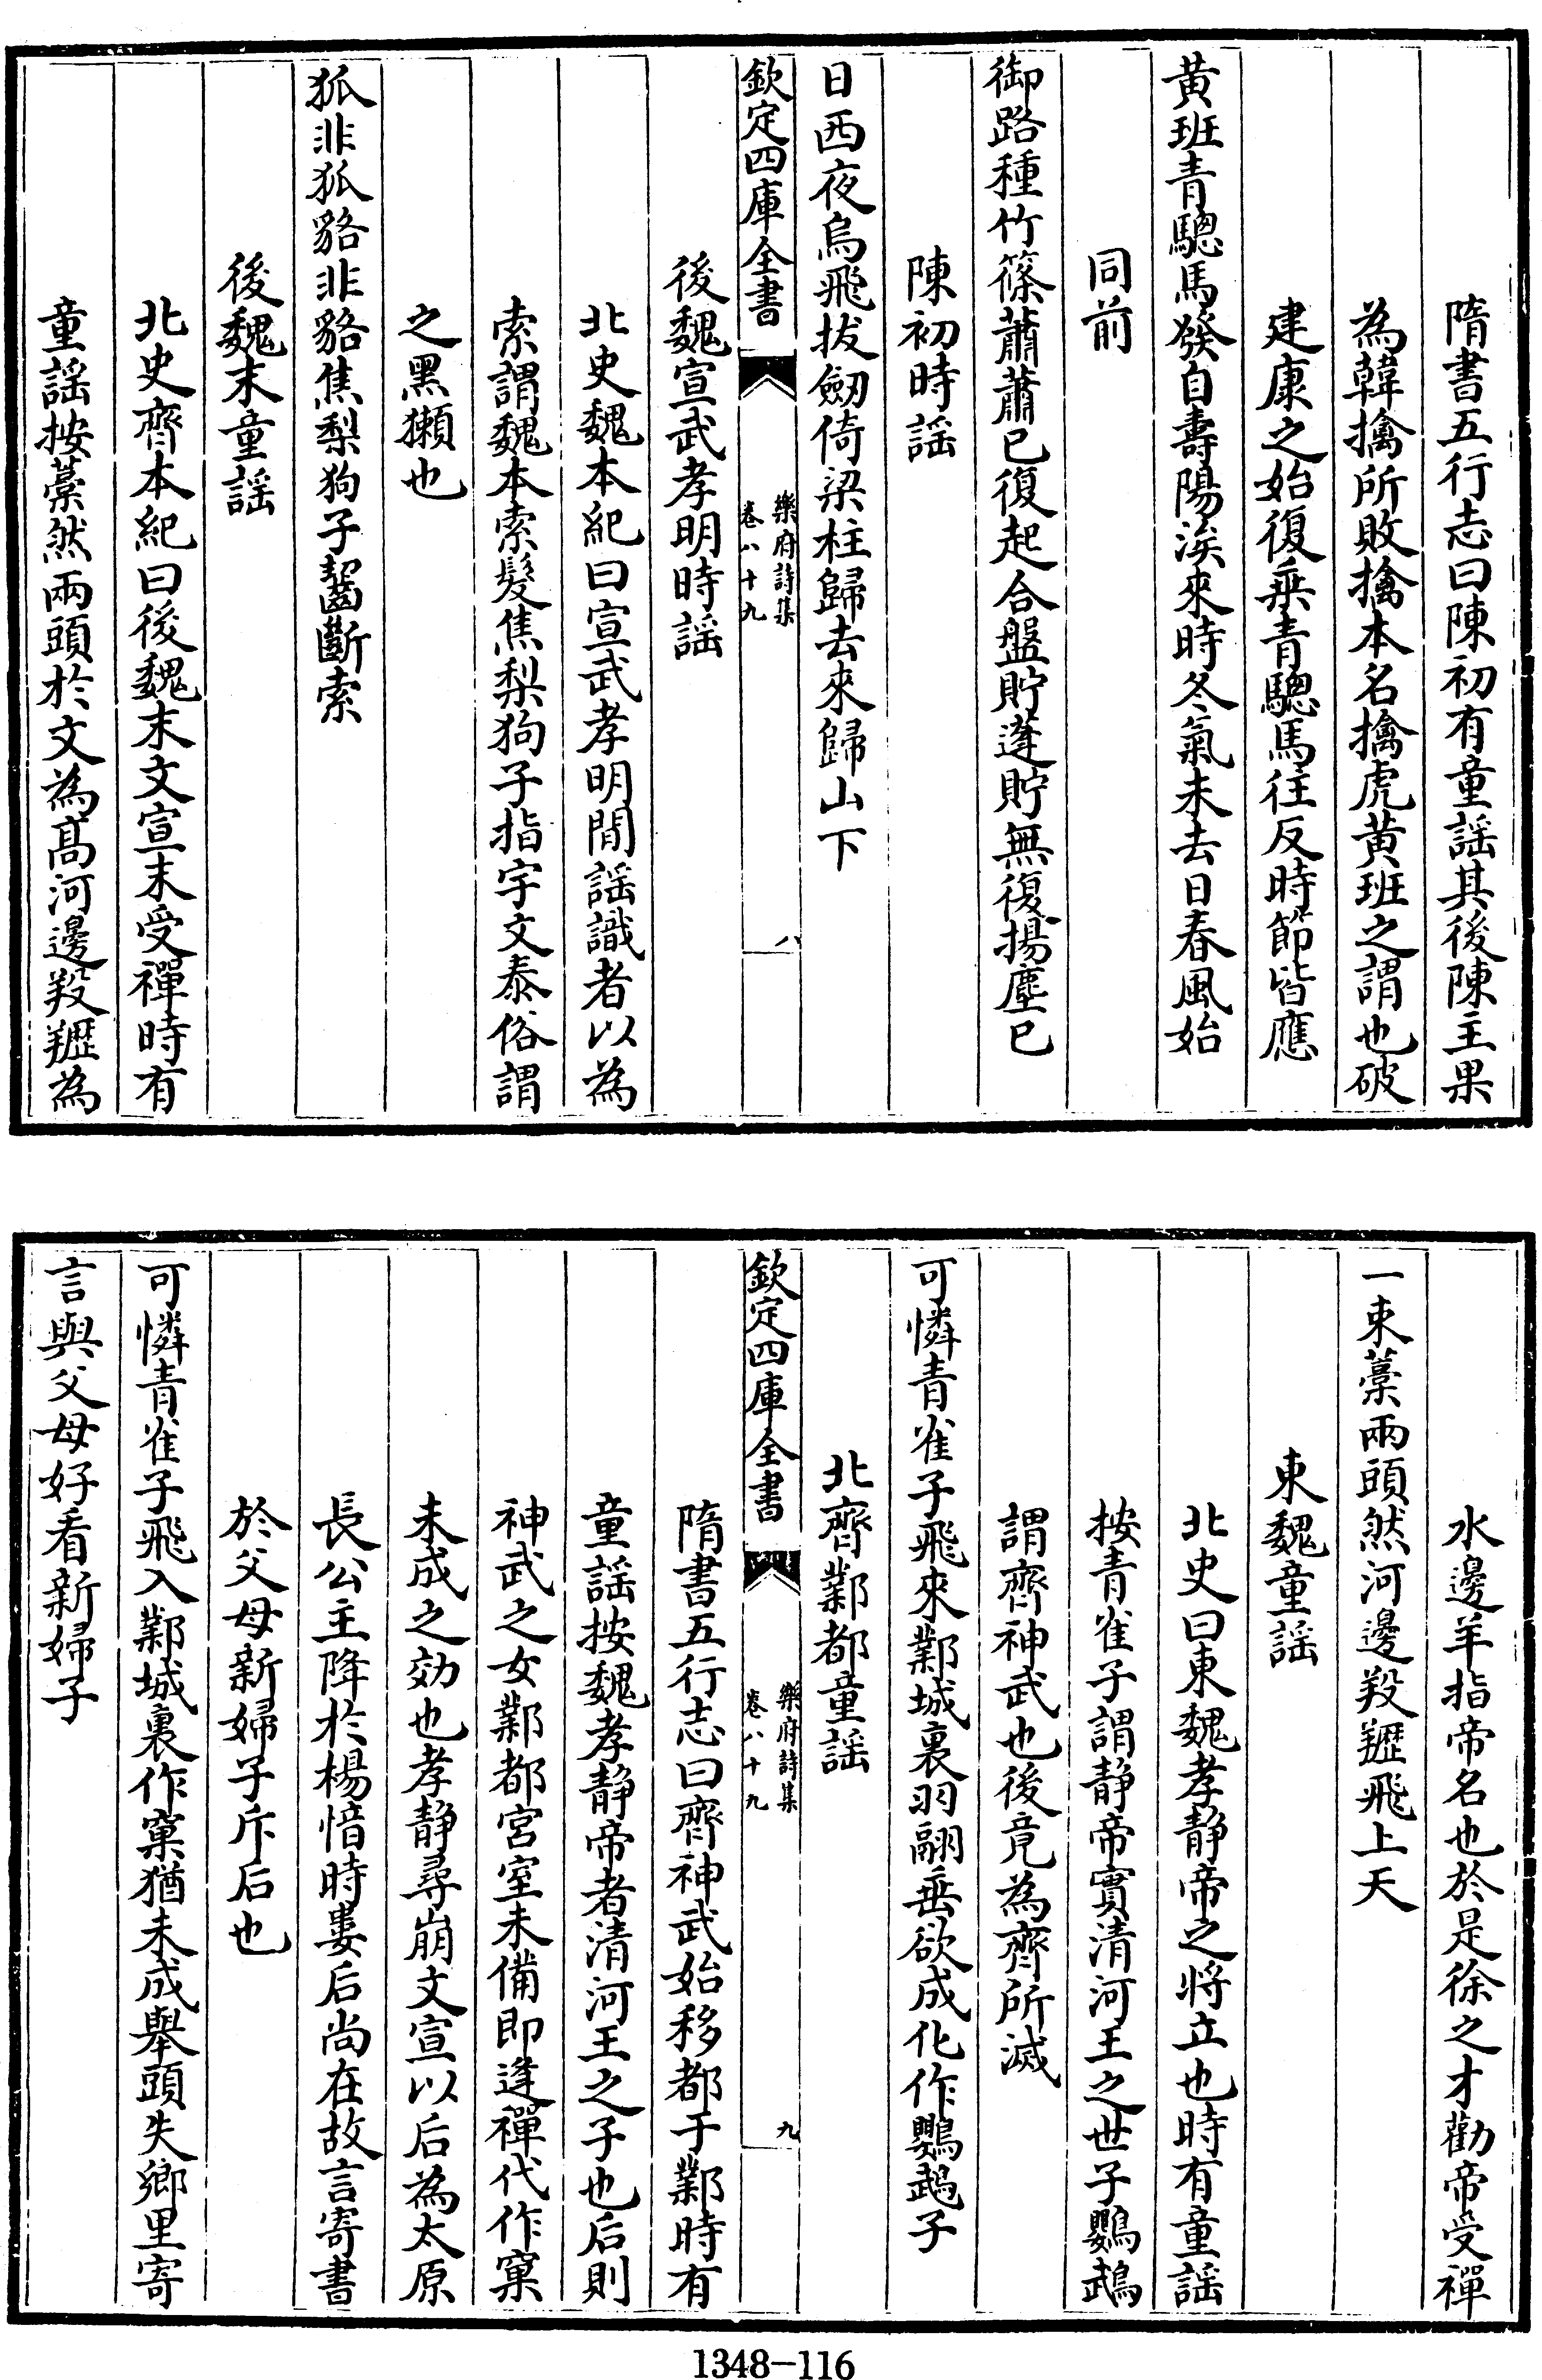 隋書五行志曰陳初有童謡其後陳主果
為韓擒所敗擒本名擒虎黄班之謂也破
建康之始復乗青驄馬往反時節皆應
黄班青驄馬發自壽陽涘來時冬氣未去日春風始
同前
御路種竹篠蕭蕭已復起合盤貯蓬貯無復揚塵已
陳初時謡
日西夜烏飛拔劒倚梁柱歸去來歸山下
欽定四庫全書
樂府詩集
卷八十九
八
後魏宣武孝明時謡
北史魏本紀曰宣武孝明間謡識者以為
索謂魏本索髮焦梨狗子指宇文泰俗謂
之黑獺也
狐非狐貉非貉焦梨狗子齧斷索
後魏末童謡
北史齊本紀曰後魏末文宣末受禪時有
童謡按藁然兩頭於文為髙河邊羖䍽為
水邊羊指帝名也於是徐之才勸帝受禪
一束藁兩頭然河邊羖䍽飛上天
東魏童謡
北史曰東魏孝静帝之將立也時有童謡
按青雀子謂静帝實清河王之世子鸚鵡
謂齊神武也後竟為齊所滅
可憐青雀子飛來鄴城裏羽翮垂欲成化作鸚鵡子
北齊鄴都童謡
欽定四庫全書
樂府詩集
卷八十九
九
隋書五行志曰齊神武始移都于鄴時有
童謡按魏孝静帝者清河王之子也后則
神武之女鄴都宫室未備即逢禪代作窠
未成之効也孝静尋崩文宣以后為太原
長公主降於楊愔時婁后尚在故言寄書
於父母新婦子斥后也
可憐青雀子飛入鄴城裏作窠猶未成舉頭失鄉里寄
言與父母好看新婦子
1348-116